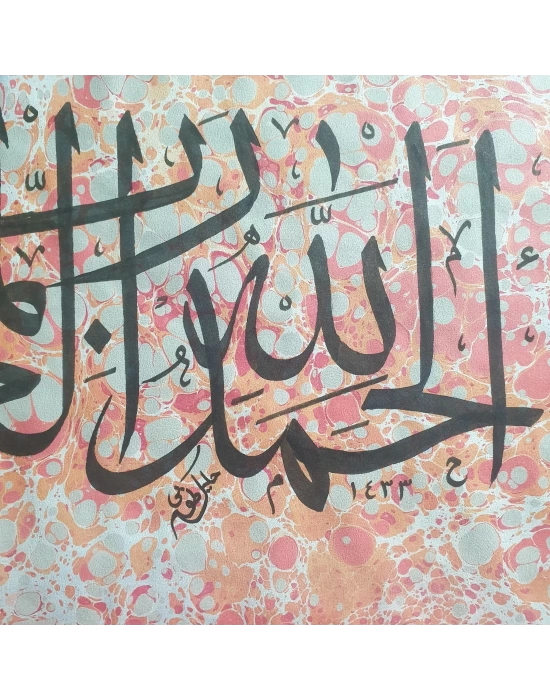 الحمد لله رب ال
١٤٣٣